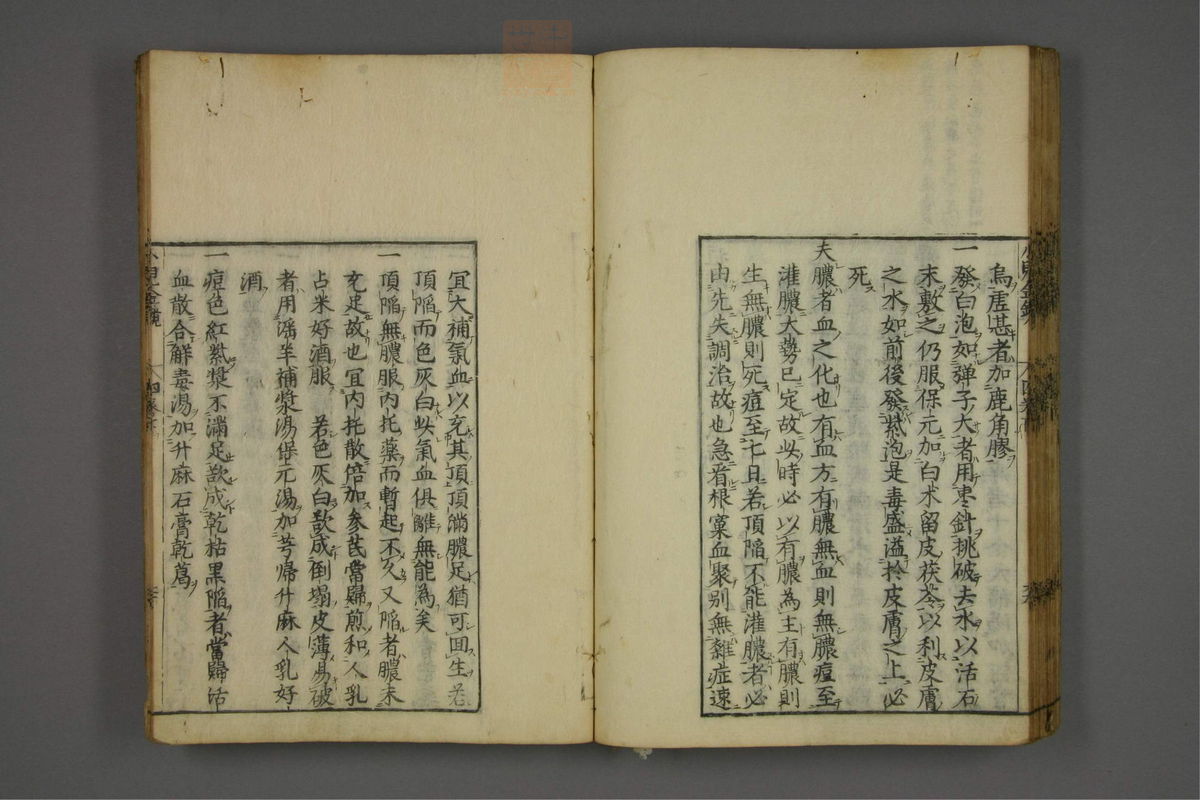 烏虗甚者加鹿角膠
一發白泡如弹子大者用棗針挑破去水以活石
末敷之仍服保元加白术留皮茯苓以利皮膚
之水如前後發紫泡是毒盛溢扵皮膚之上必
死
夫膿者血之化也有血方有膿無血則無膿痘至
灌膿大勢已定故此時必以有膿為主有膿則
生無膿則死痘至七日若頂陷不能灌膿者必
由先失調治故也急看根窠血聚别無雜症速
冝大補氣血以充其頂頂滿膿足猶可回生若
頂陷而色灰白此氣血俱離無能為矣
一頂陷無膿服内托藥而暫起不久又陷者膿未
充足故也冝内托散倍加参芪當歸煎和人乳
占米好酒服 若色灰白欲成倒塌皮薄易破
者用
補漿湯保元湯加芎歸升麻人乳好
酒
一痘色紅紫漿不滿足欲成乾枯黒陷者當歸活
血散合解毒湯加升麻石膏乾葛
小兒金鏡